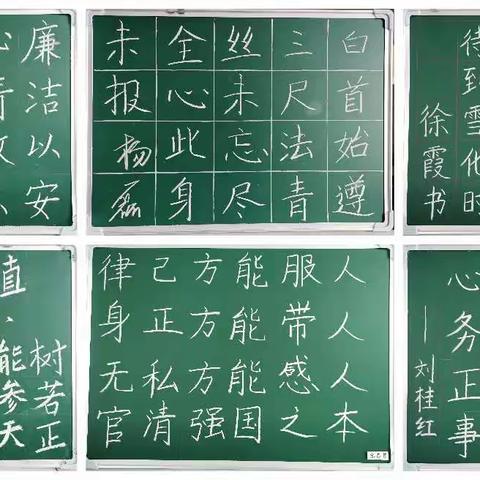 廉洁以安
白首始遵
三尺法青
丝未忘尽
全心此身
未报杨磊
待到雪化时
徐霞书
树若正
直,能参天
律己方能服人
身正方能带人
无私方能感人
官清强国之本
心务正事
—刘桂红